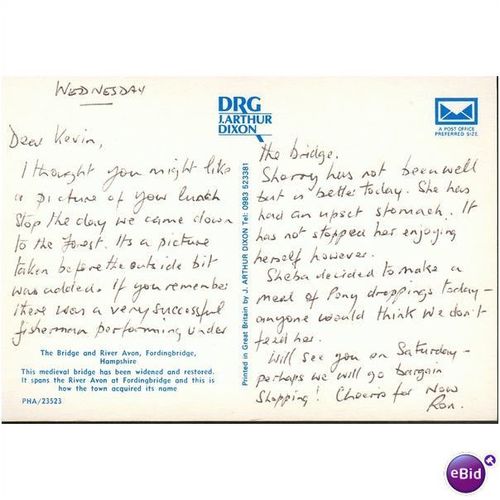 WEDNESDAY
Dear Kevin,
I thought you might like
a picture of your lunch
stop the day we came down
to the Forest. Its a picture
taken before the outside bit
was added. If you remember
there was a very successful
fisherman performing under
The Bridge and River Avon, Fordingbridge,
Hampshire
This medieval bridge has been widened and restored.
It spans the River Avon at Fordingbridge and this is
how the town acquired its name
PHA/23523
DRG
J.ARTHUR
DIXON
Printed in Great Britain by J. ARTHUR DIXON Tel: 0983 523381
A POST OFFICE
PREFERRED SIZE
the bridge.
Sherry has not been well
but is better today. She has
had an upset stomach. It
has not stopped her enjoying
herself however.
Sheba decided to make a
meal of Pony droppings today -
anyone would think we don't
feed her.
Will see you on Saturday -
perhaps we will go bargain
shopping! Cheerio for now
Ron.
eBid